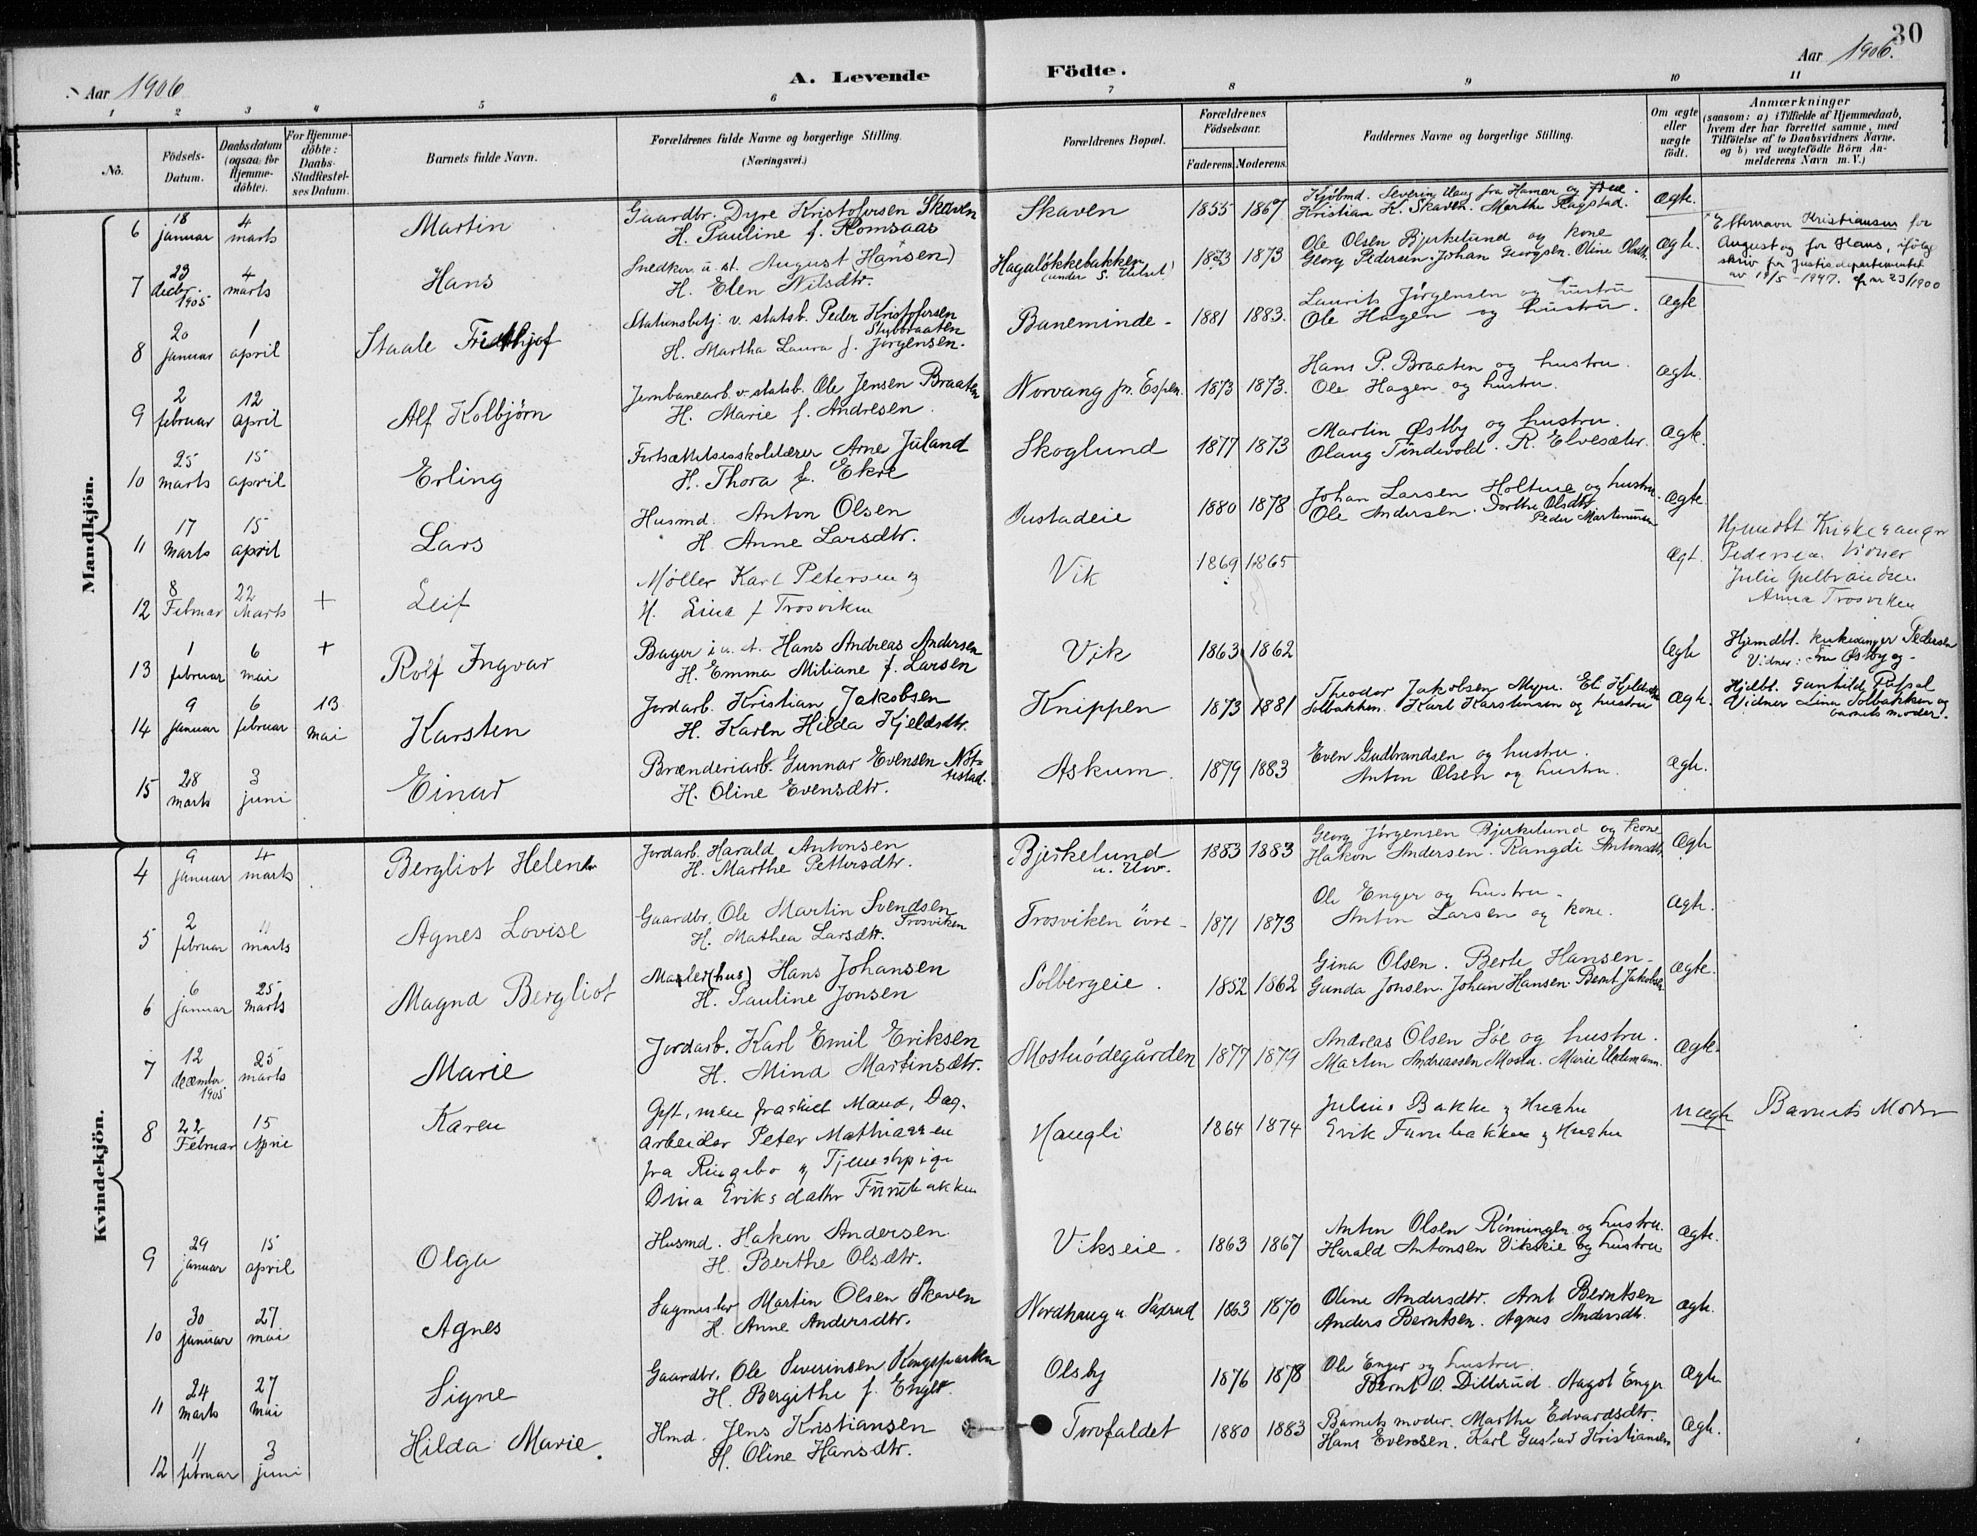 30
Aar 1906
A. Levende Födte.
Aar 1906.
1 2 3 4 5 6 7 8 9 10 11
No.
Födsels-Datum.
Daabsdatum (ogsaa for Hjemme-döbte).
For Hjemme-döbte: Daabs-Stadfæstel-ses Datum.
Barnets fulde Navn.
Forældrenes fulde Navne og borgerlige Stilling. (Næringsvei.)
Forældrenes Bopæl.
Forældrenes Födselsaar.
Faderens. Moderens.
Faddernes Navne og borgerlige Stilling.
Om ægte eller uægte födt.
Anmærkninger
(saasom: a) i Tilfælde af Hjemmedaab, hvem der har forrettet samme, med Tilföielse af to Daabsvidners Navne, og b) ved uægtefödte Börn An-melderens Navn m. V.)
Mandkjön.
6 18 januar 4 marts Martin Gaardbr. Dyre Kristofersen Skaven
H. Pauline f. Romsaas Skaven 1855 1867 Kjöbmd. Severin Haug fra Hamar og Frue.
Kristian K. Skaven. Marthe Ragstad. Ægte.
7 23 decbr. 1905 4 marts Hans Snedker u. st. August Hansen)
H. Elen Nilsdtr. Hagaløkkebakken 1873 Ole Olsen Bjerkelund og kone
Georg Pedersen. Johan Georgsen. Oline Olsdtr. Ægte.
Efternavn Kristiansen for
August og for Hans, ifølge
skriv fra Justisdepartementet
av 19/5-1947.
8 20 januar 1 april Staale Fridthjof Stationsbetj. v. statsb. Peder Kristofersen
Stubbraaten
H. Martha Laura f. Jørgensen. Baneminde - 1881 1883. Laurits Jørgensen og hustru
Ole Hagen og hustru. Ægte
9 2 februar 12 april Alf Kolbjørn Jernbanearb. v. statsb. Ole Jensen Braaten
H. Marie f. Andresen. Norvang pr. Espen. 1873 1873. Hans P. Braaten og hustru.
Ole Hagen og hustru. Ægte.
10 25 marts 15 april Erling Fortsættelsesskolelærer Arne Juland
H. Thora f. Ekre Skoglund 1877 1873 Martin Østby og hustru.
Olaug Tindevold. R. Elvesæter. Ægte.
11 17 marts 15 april Lars Husmd. Anton Olsen
H. Anne Larsdtr. 1880 1878 Johan Larsen Holtene og hustru.
Ole Andersen. Dorthe Olsdtr.
Peder Martinusen Ægte.
12 8 Februar 22 Marts + Leif Møller Karl Petersen og
H. Lina f Trosviken Vik 1869 1865 Ægt.
Hjemdbt Kirkesanger
Pedersen. Vidner
Julie Gulbrandsen
Anna Trosviken
13 1 februar 6 mai + Rolf Ingvar Bager i u. st. Hans Andreas Andersen
H. Emma Miliane f. Larsen Vik 1863 1862 Ægte
Hjemdbt. kirkesanger Pedersen
Vidner: Fru Østby og -
14 9 januar 6 februar 13 mai Karsten Jordarb. Kristian Jakobsen
H. Karen Hilda Kjeldsdtr. Knippen 1873 1881 Theodor Jakobsen Myre.
Solbakken. Karl Karstensen og hustru Ægte.
Hjdbt. Gunhild
Vidner Lina Solbakken og
barnets moder.
15 28 marts 3 juni Einar Brænderiarb. Gunnar Evensen
H. Oline Evensdtr. Askum. 1879 1883 Even Gudbrandsen og hustru.
Anton Olsen og hustru. Ægte.
Kvindekjön.
4 9 januar 4 marts Bergliot Helene Jordarb. Harald Antonsen
H. Marthe Pettersdtr. Bjerkelund 1883 1883 Georg Jørgensen Bjerkelund og kone
Hakon Andersen. Rangdi Antonsdtr. Ægte
5 2 februar 11 marts Agnes Lovise Gaardbr. Ole Martin Svendsen
Trosviken
H. Mathea Larsdtr. Trosviken övre - 1871 1873 Ole Enger og hustru -
Anton Larsen og kone. Ægte.
6 6 januar 25 marts Magna Bergliot Maler (hus) Hans Johansen
H. Pauline Jonsen Solbergeie. 1852 1862 Gina Olsen. Berte Hansen -
Gunda Jonsen. Johan Hansen. Bernt Jakobsen Ægte.
7 12 december 1905 25 marts Marie Jordarb. Karl Emil Eriksen
H. Mina Martinsdtr. Mostuödegården 1877 1879 Andreas Olsen Søe og hustru.
Martin Andreassen Mostu. Marie Ædte.
8 22 Februar 15 April Karen Gift, men fraskilt Mand, Dag.
arbeider Peter Mathiassen
fra Ringebo og Tjenestepige
Dina Eriksdatter Furubakken Haugli 1864 1874 Julius Bakke og Hustru
Erik Furubakken og Hustru Uægte Barnets Moder
9 29 januar 15 april Olga Husmd. Haken Andersen
H. Berthe Olsdtr. Vikseie. 1863 1867 Anton Olsen Rønningen og hustru.
Harald Antonsen Vikseie og hustru Ægte.
10 30 januar 27 mai Agnes Sagmester Martin Olsen Skaven
H. Anne Andersdtr. Nordhaug u. Saxrud 1863 1870 Oline Andersdtr. Arnt Berntsen
Anders Berntsen. Agnes Andersdtr. Ægte.
11 24 marts 27 mai Signe Gaardbr. Ole Severinsen Kongsparten
H. Bergithe f. Enger. Olsby 1876 1878 Ole Enger og hustru
Bernt O. Dillerud. Magot Enger Ægte.
12 11 februar 3 juni Hilda Marie. Hmd. Jens Kristiansen
H. Oline Hansdtr. Torvfaldet 1880 1883 Barnets moder. Marthe Edvardsdtr.
Hans Evensen. Karl Gustav Kristiansen Ægte.